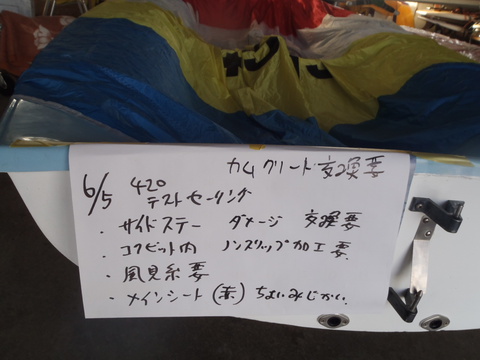 カムクリート交換要
6/5 420
テストセーリング
・サイドステー ダメージ 交換要
・コクピット内 ノンスリップ加工要
・風見糸要
・メインシート(赤)ちょいみじかい